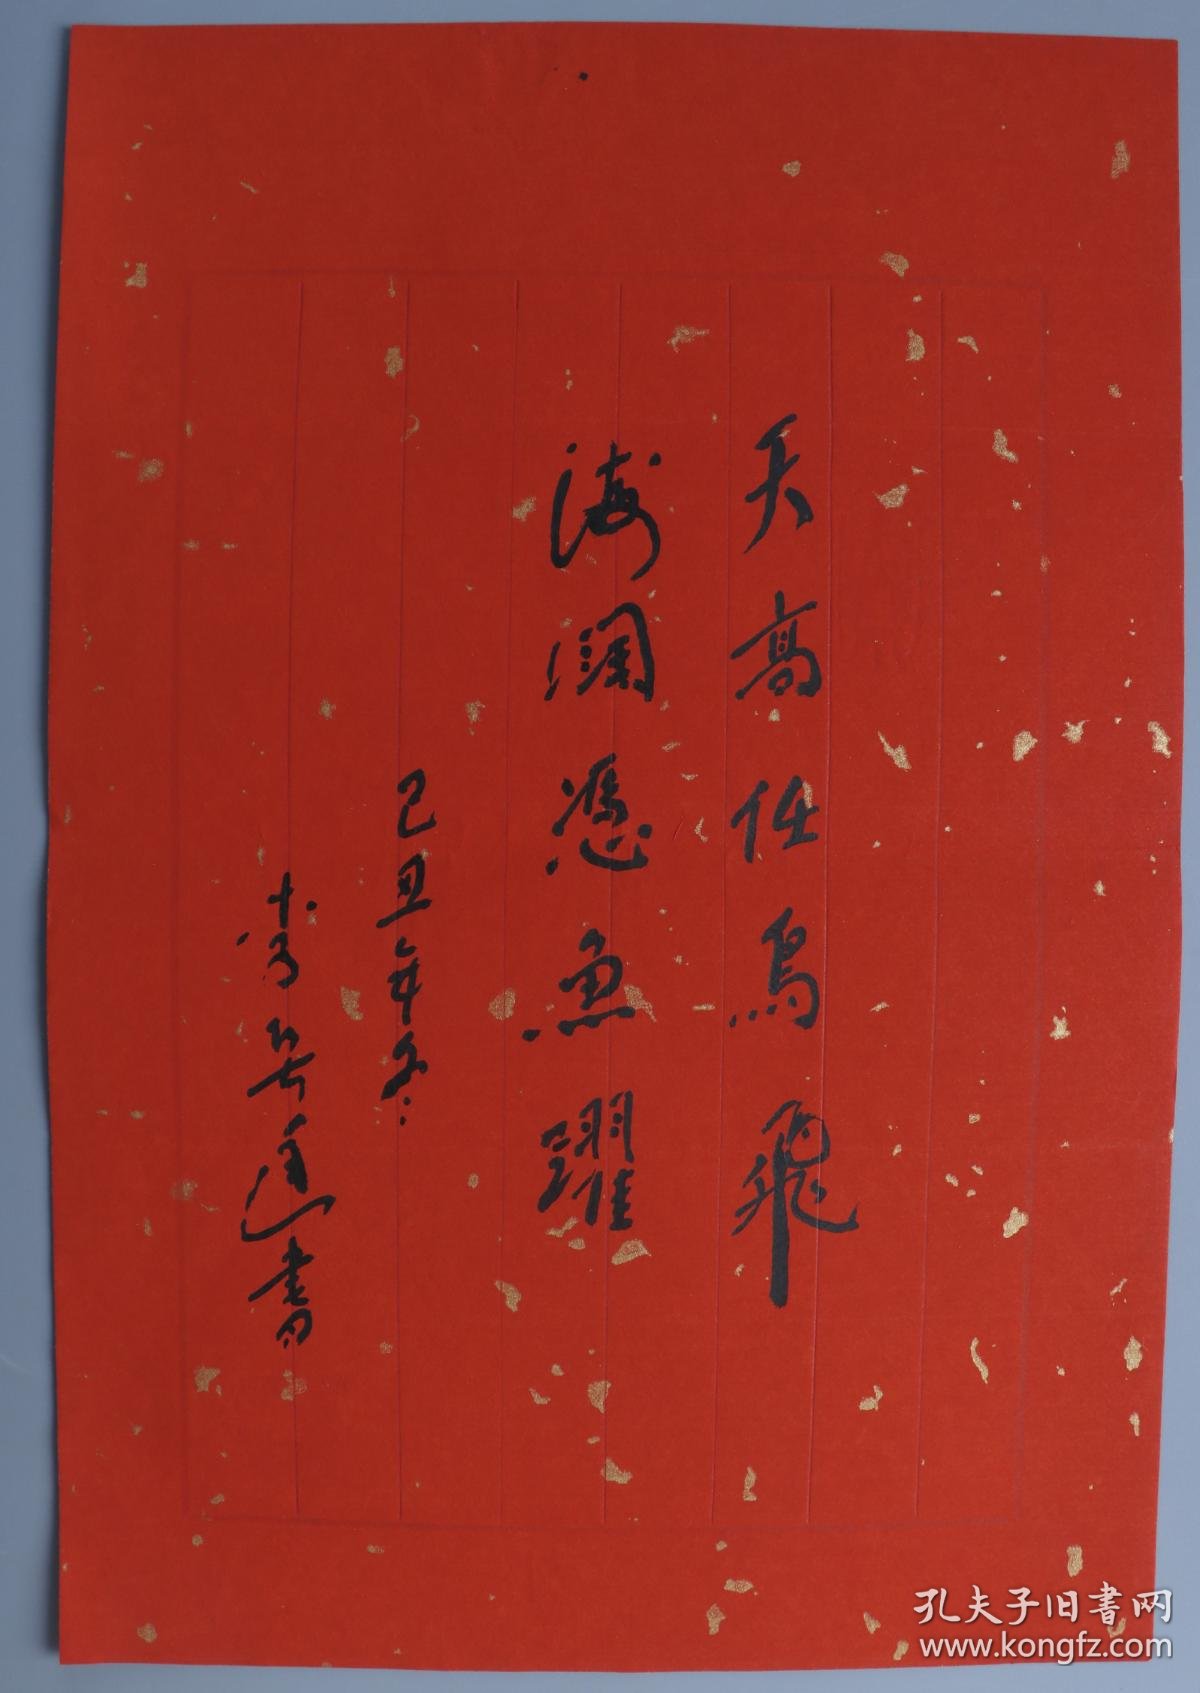 天高任鸟飛
海闊憑魚躍
己丑年冬
李
書
孔夫子旧書网
www.kongfz.com